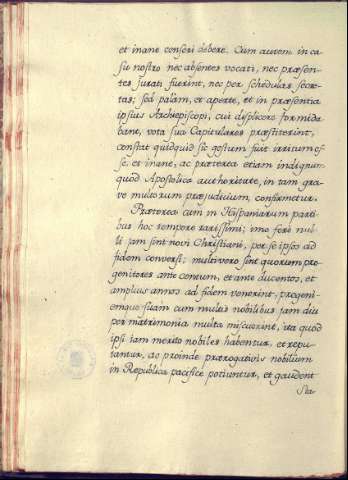 et inane censeri debere. Cum autem in ca-
su nostro nec absentes vocati, nec præsen-
tes jurati fuerint, nec per schedulas secre-
tas; sed palam, et aperte, et in præsentia
ipsius Archiepiscopi, cui displicere formida-
bant, vota sua Capitulares præstiterint,
constat quidquid sic gestum fuit irritum es-
se, et inane, ac præterea etiam indignum
quod Apostolica authoritate, in tam gra-
ve multorum præjudicium, confirmetur.
Præterea cum in Hispaniarum parti-
bus hoc tempore rarissimi; imo fere nul-
li jam sint novi Christiani, per se ipsos ad
fidem conversi; multi vero sint quorum pro-
genitores ante centum, et ante ducentos, et
amplius annos ad fidem venerint, progeni-
emque suam cum multis nobilibus jam diu
per matrimonia multa miscuerint, ita quod
ipsi iam merito nobiles habentur, et repu-
tantur, ac proinde prærogativis nobilium
in Republica pacifice potiuntur, et gaudent
Sta-